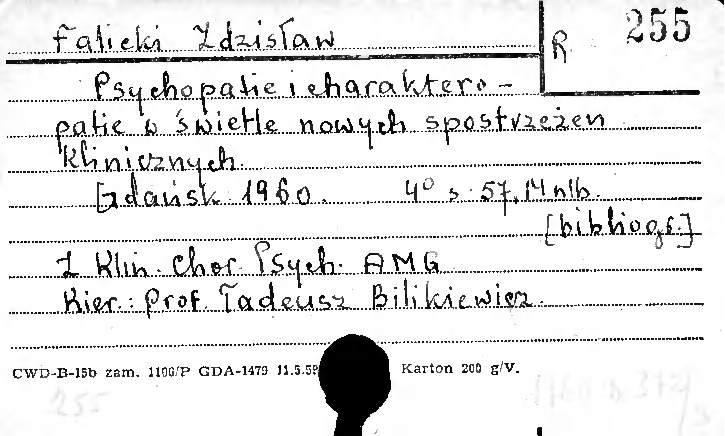 Falicki Zdzisław
R 255
Psychopatie i charaktero-
patie w świetle nowych spostrzeżen
klinicznych.
Gdańsk 1960. 4° s. 57, 14 nlb.
[bibliogr.]
Z Klin. Chor. Psych. AMG
Kier.: Prof. Tadeusz Bilikiewicz.
CWD-B-15b zam. 1106/P GDA-1479 11.5.59 Karton 200 g/V.
255